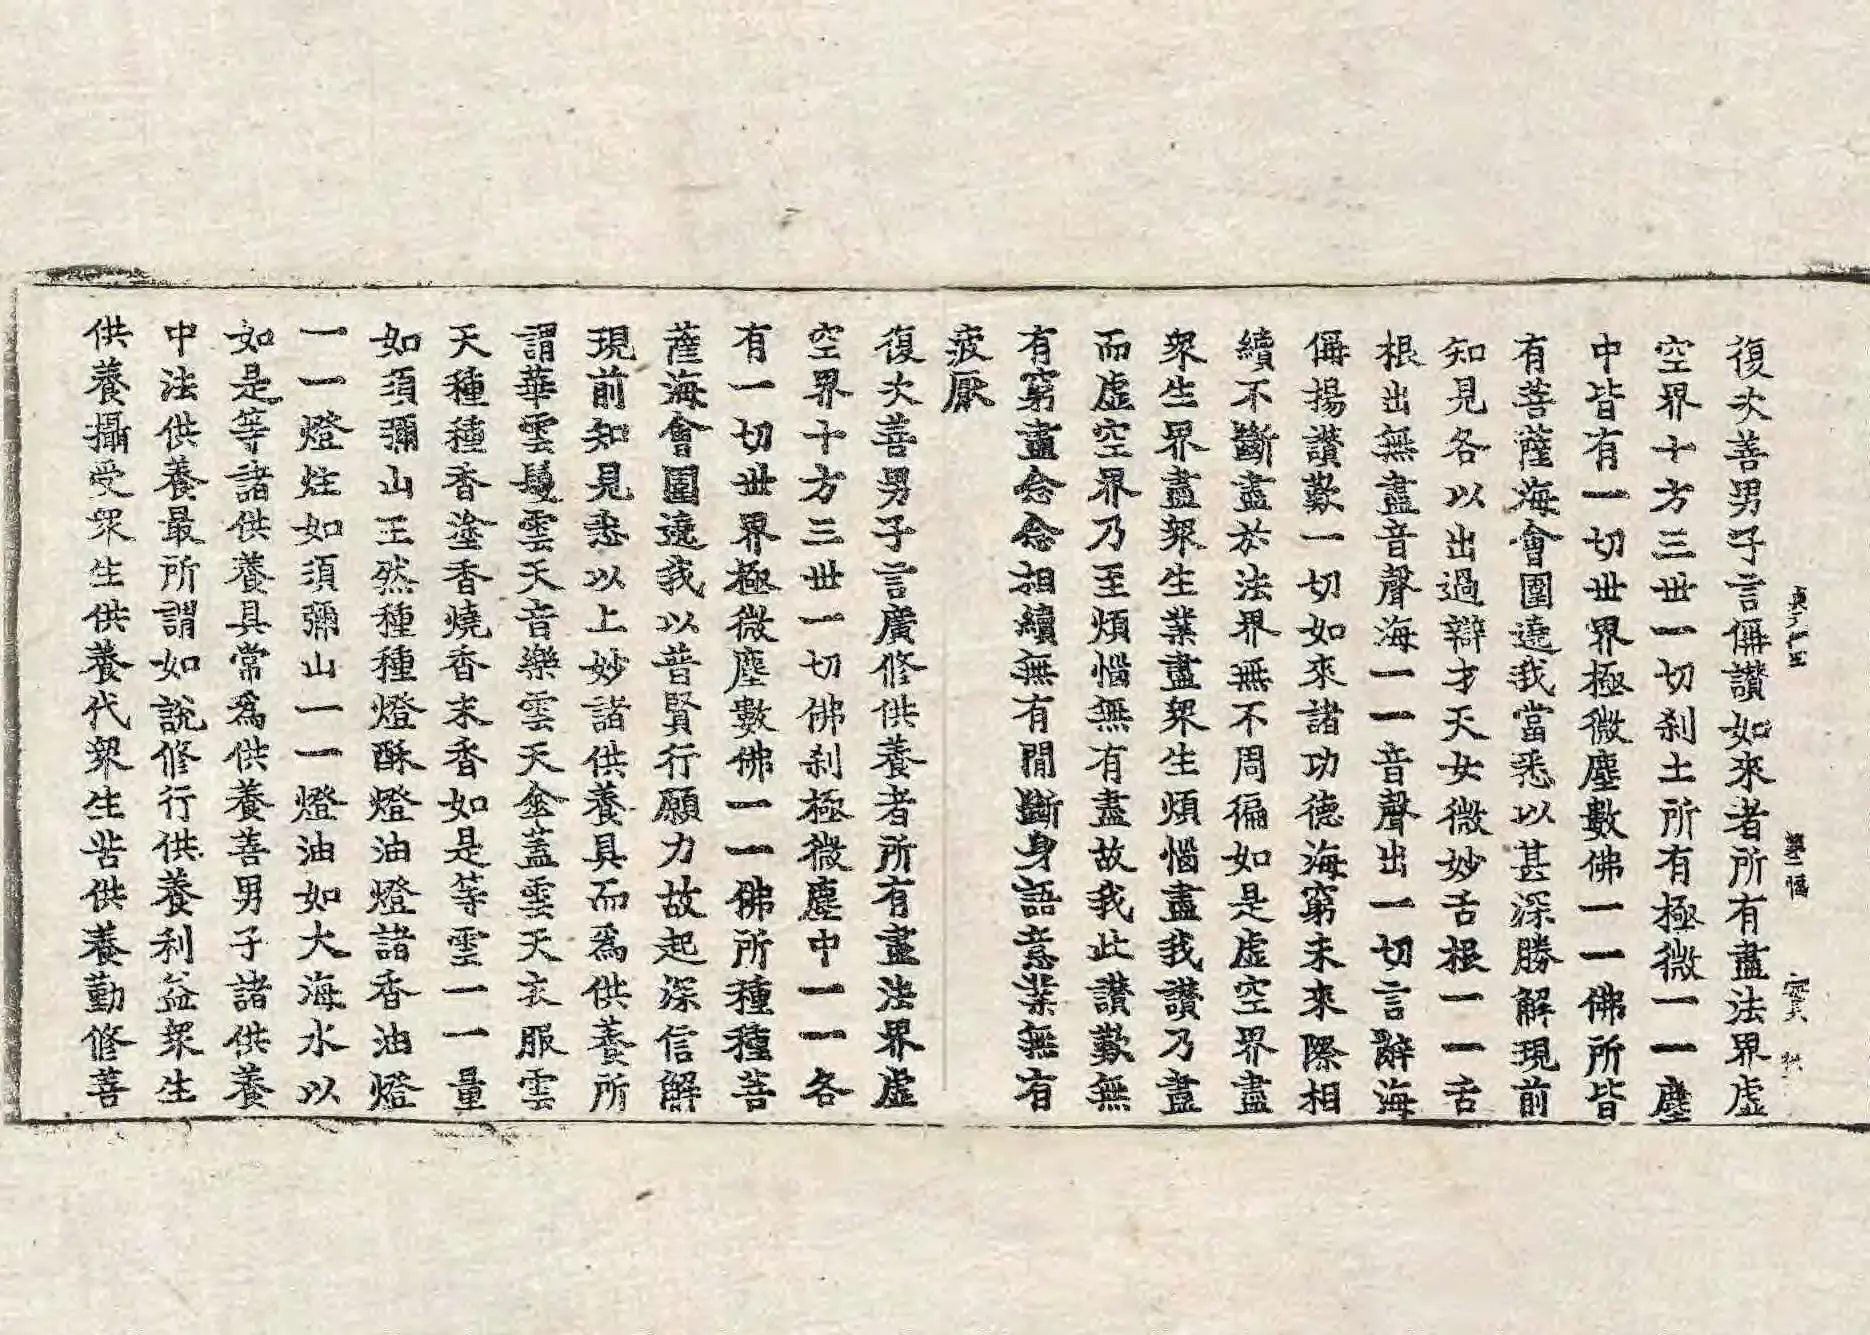 復次善男子言偁讃如來者所有盡法界虛
空界十方三世一切刹土所有極微一一塵
中皆有一切世界極微塵數佛一一佛所皆
有菩薩海會圍遶我當悉以甚深勝解現前
知見各以出過辯才天女微妙舌根一一舌
根出無盡音聲海一一音聲出一切言辭海
偁揚讃歎一切如來諸功德海窮未來際相
續不斷盡於法界無不周徧如是虛空界盡
衆生界盡衆生業盡衆生煩惱盡我讃乃盡
而虛空界乃至煩惱無有盡故我此讃歎無
有窮盡念念相續無有閒斷身語意業無有
疲厭
復次善男子言廣修供養者所有盡法界虛
空界十方三世一切佛刹極微塵中一一各
有一切世界極微塵數佛一一佛所種種菩
薩海會圍遶我以普賢行願力故起深信解
現前知見悉以上妙諸供養具而爲供養所
謂華雲鬘雲天音樂雲天傘蓋雲天衣服雲
天種種香塗香燒香末香如是等雲一一量
如須彌山王然種種燈酥燈油燈諸香油燈
一一燈炷如須彌山一一燈油如大海水以
如是等諸供養具常爲供養善男子諸供養
中法供養最所謂如說修行供養利益衆生
供養攝受衆生供養代衆生苦供養勤修善